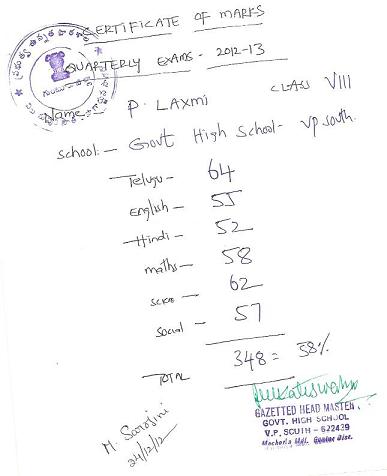 CERTIFICATE OF MARKS
QUARTERLY EXAMS - 2012-13
Name - P. LAXMI CLASS VIII
School:- Govt High School- VP.South.
Telugu - 64
English - 55
Hindi - 52
maths - 58
science - 62
Social - 57
TOTAL 348 = 58%
M. Sarojini
24/12/12
GAZETTED HEAD MASTER,
GOVT. HIGH SCHOOL
V.P. SOUTH - 522439
Macherla Mdl. Guntur Dist.